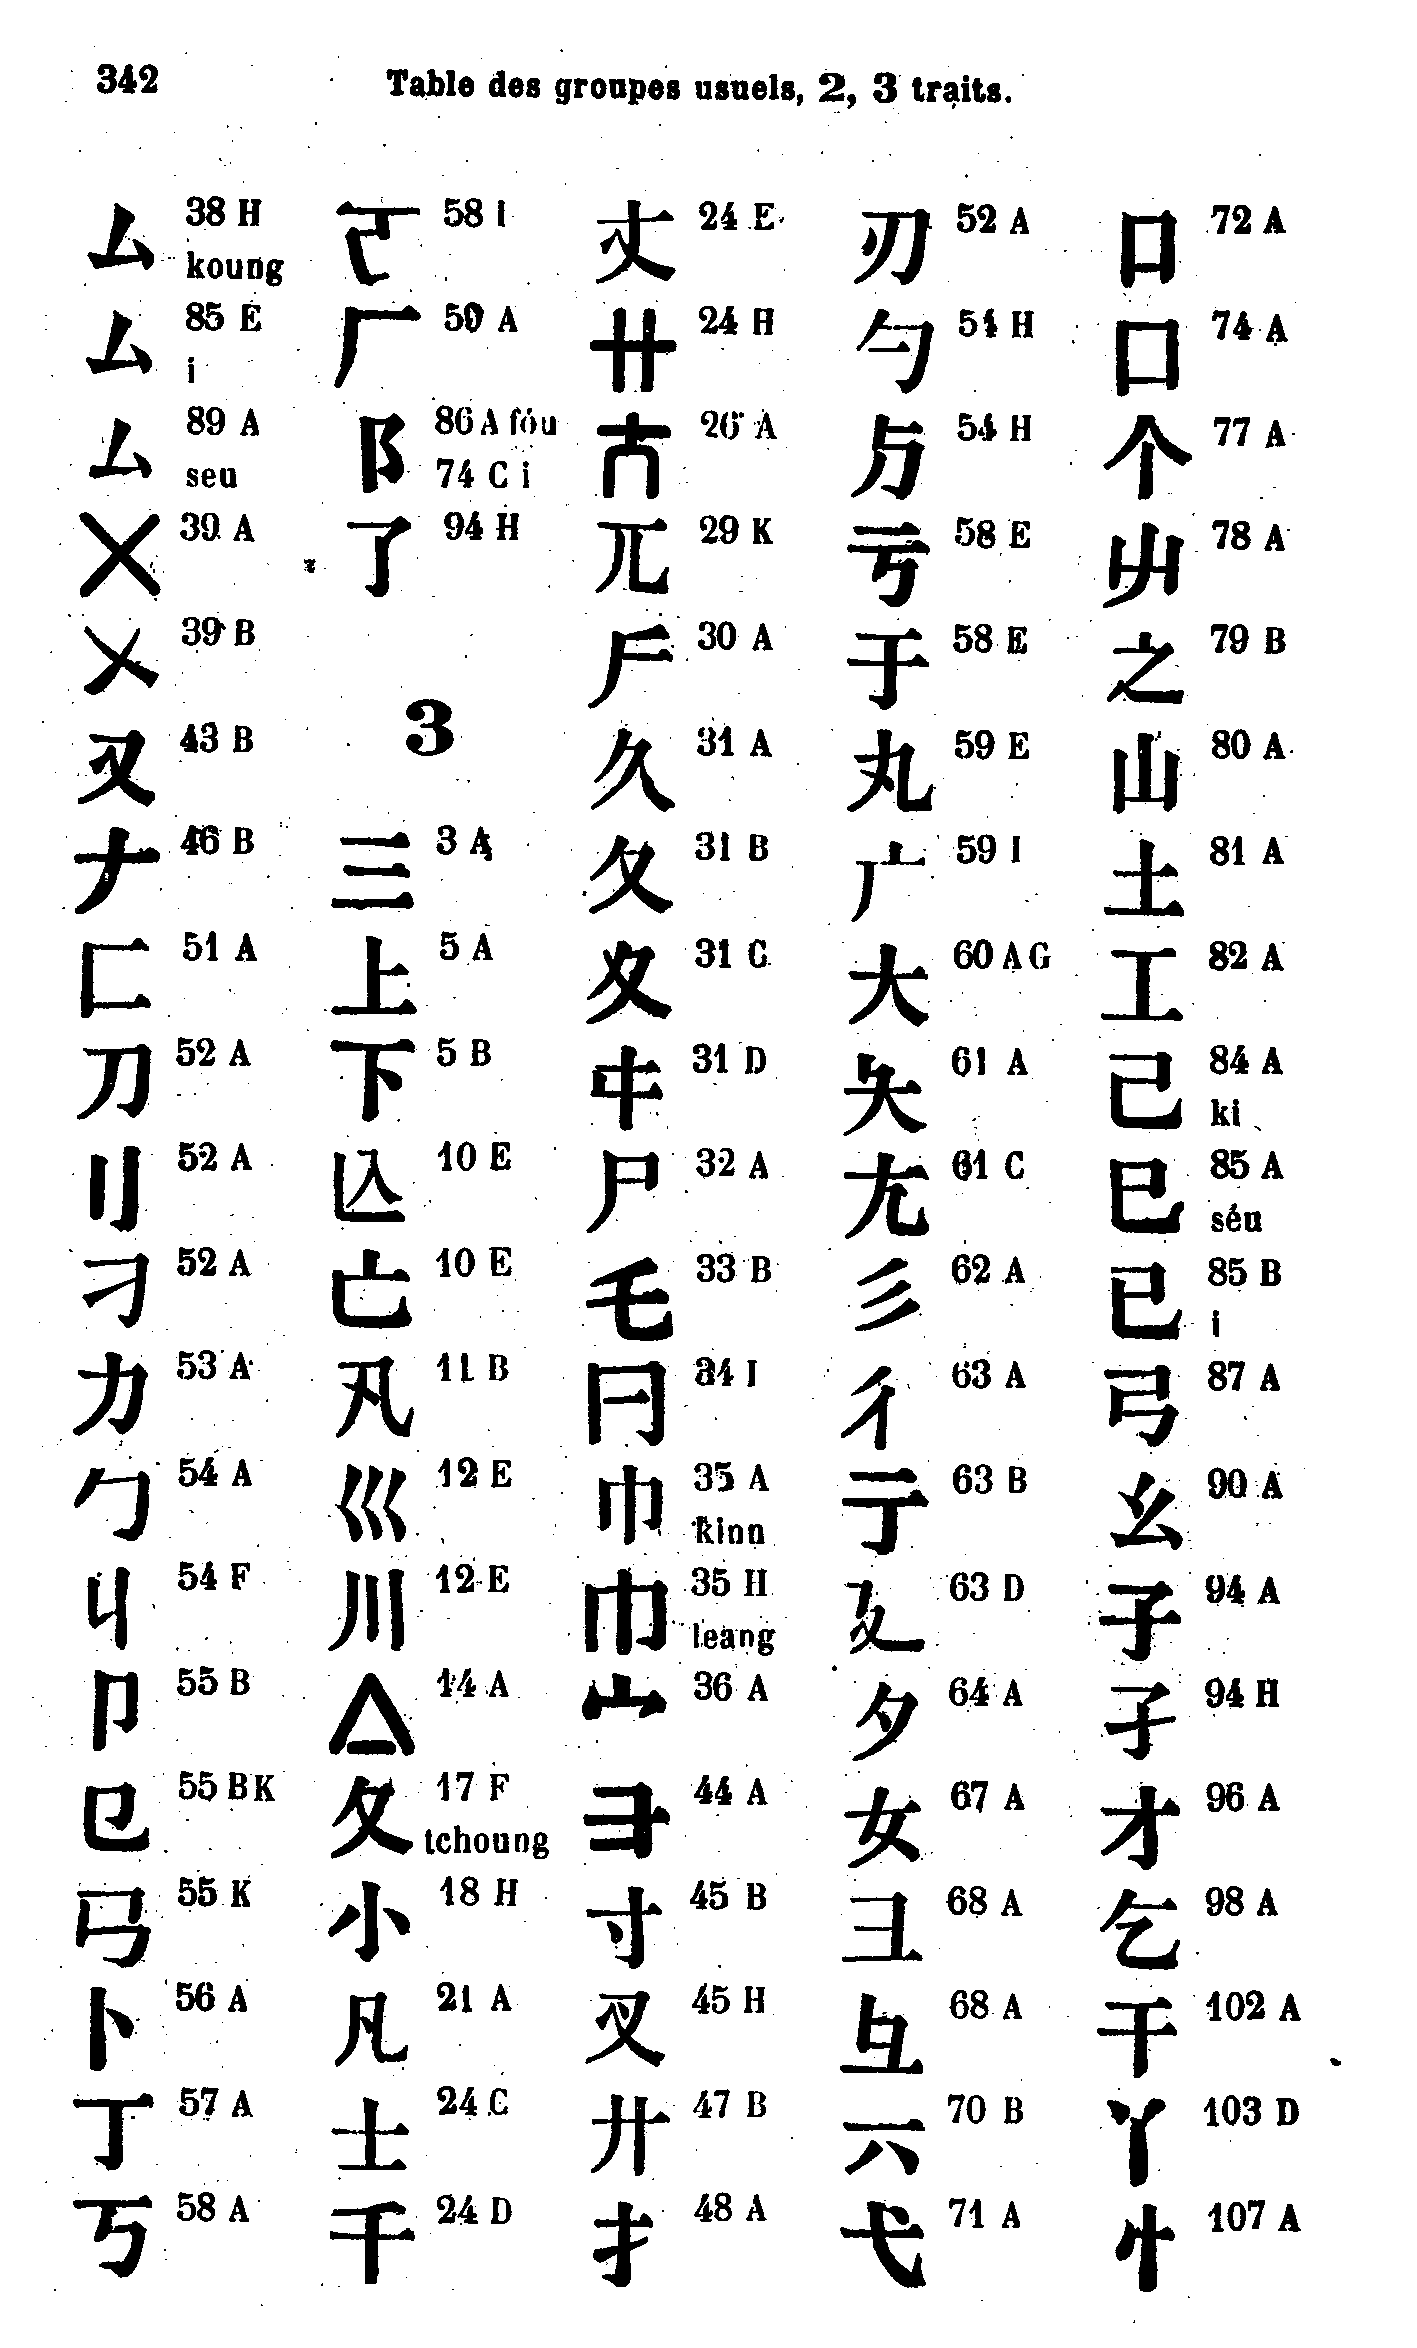 342
Table des groupes usuels, 2, 3 traits.
厶 38 H
koung
厶 85 E
i
厶 89 A
seu
㐅 39 A
乂 39 B
㕚 43 B
𠂇 46 B
匚 51 A
刀 52 A
刂 52 A
刁 52 A
力 53 A
勹 54 A
丩 54 F
卩 55 B
㔾 55 BK
55 K
卜 56 A
丁 57 A
丂 58 A
58 I
厂 59 A
阝 86 A fóu
74 C i
了 94 H
3
三 3 A
上 5 A
下 5 B
亾 10 E
亡 10 E
卂 11 B
巛 12 E
川 12 E
亼 14 A
夂 17 F
tchoung
小 18 H
凡 21 A
士 24 C
千 24 D
丈 24 E
卄 24 H
26 A
兀 29 K
30 A
久 31 A
夂 31 B
夊 31 C
㐄 31 D
尸 32 A
乇 33 B
冃 34 I
巾 35 A
kinn
35 H
leang
36 A
彐 44 A
寸 45 B
叉 45 H
廾 47 B
扌 48 A
刃 52 A
勺 54 H
与 54 H
亏 58 E
于 58 E
丸 59 E
广 59 I
大 60 A G
61 A
尢 61 C
彡 62 A
彳 63 A
亍 63 B
廴 63 D
夕 64 A
女 67 A
彐 68 A
彑 68 A
70 B
弋 71 A
口 72 A
囗 74 A
个 77 A
屮 78 A
之 79 B
山 80 A
土 81 A
工 82 A
己 84 A
ki
巳 85 A
séu
已 85 B
i
弓 87 A
幺 90 A
子 94 A
孑 94 H
才 96 A
乞 98 A
干 102 A
丫 103 D
忄 107 A